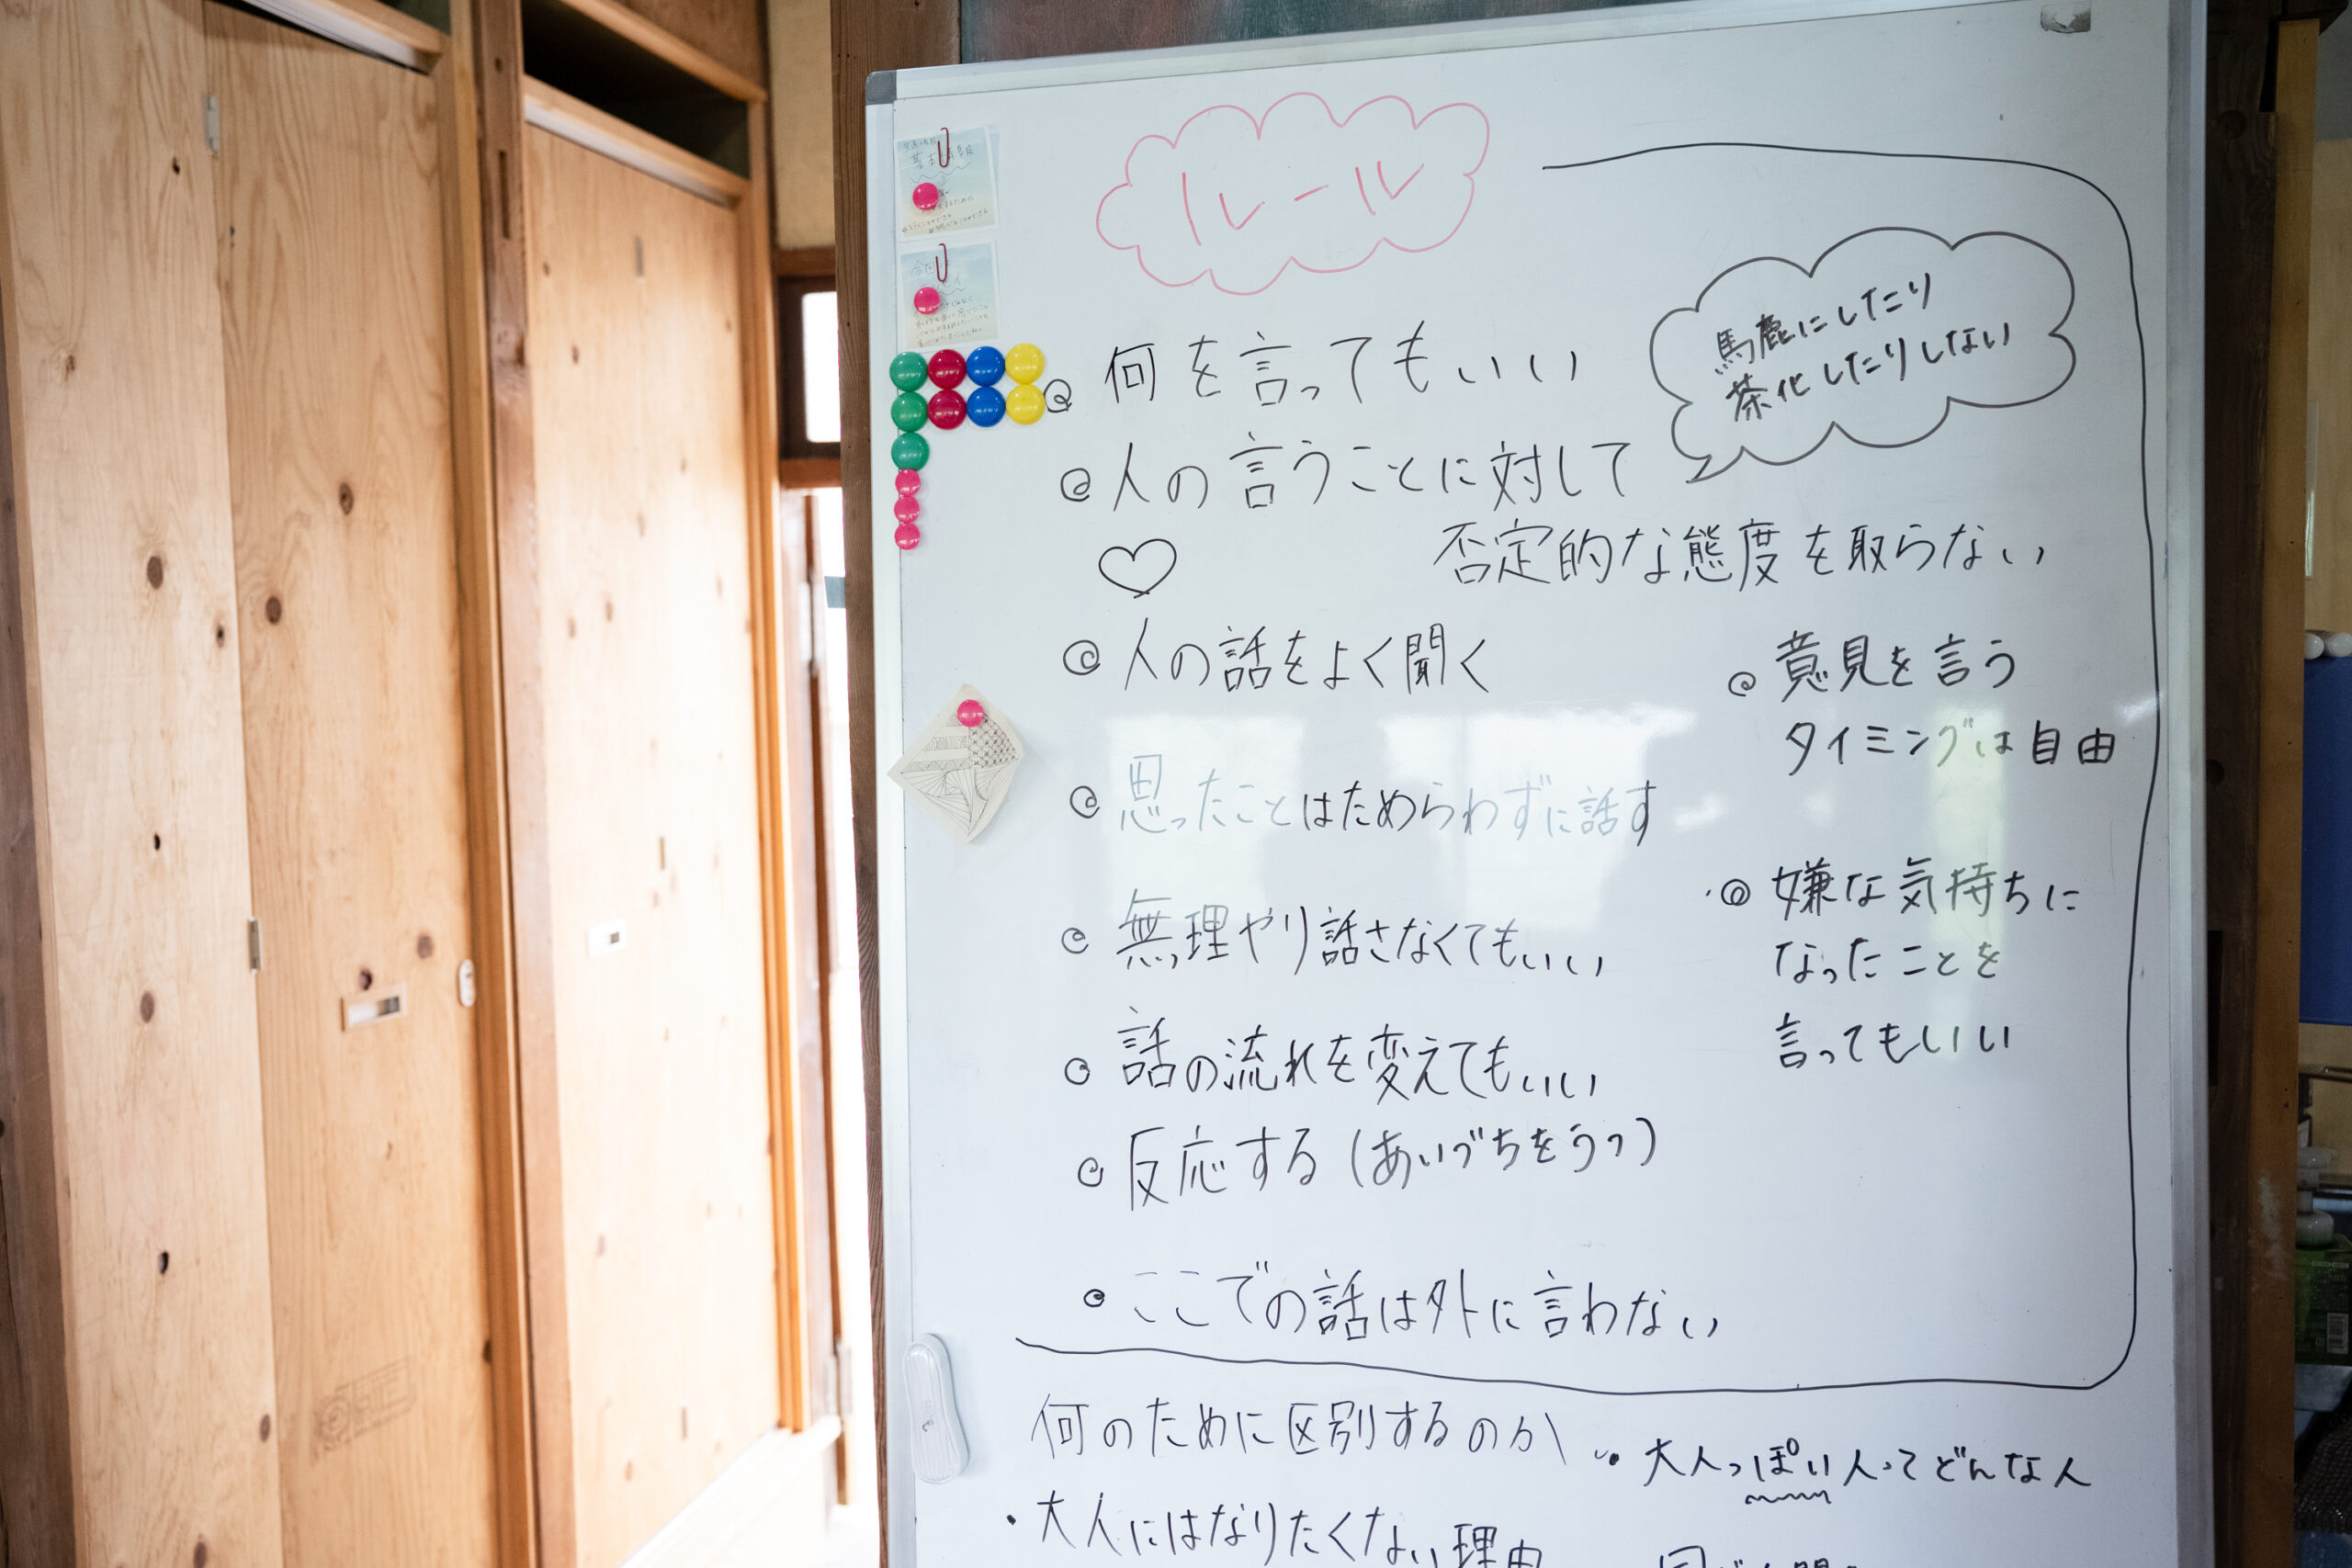 ルール
何を言ってもいい
馬鹿にしたり
茶化したりしない
人の言うことに対して
否定的な態度を取らない
人の話をよく聞く
思ったことはためらわずに話す
無理やり話さなくてもいい
話の流れを変えてもいい
反応する(あいづちをうつ)
ここでの話は外に言わない
意見を言う
タイミングは自由
嫌な気持ちに
なったことを
言ってもいい
何のために区別するのか
・大人っぽい人ってどんな人
・大人にはなりたくない理由